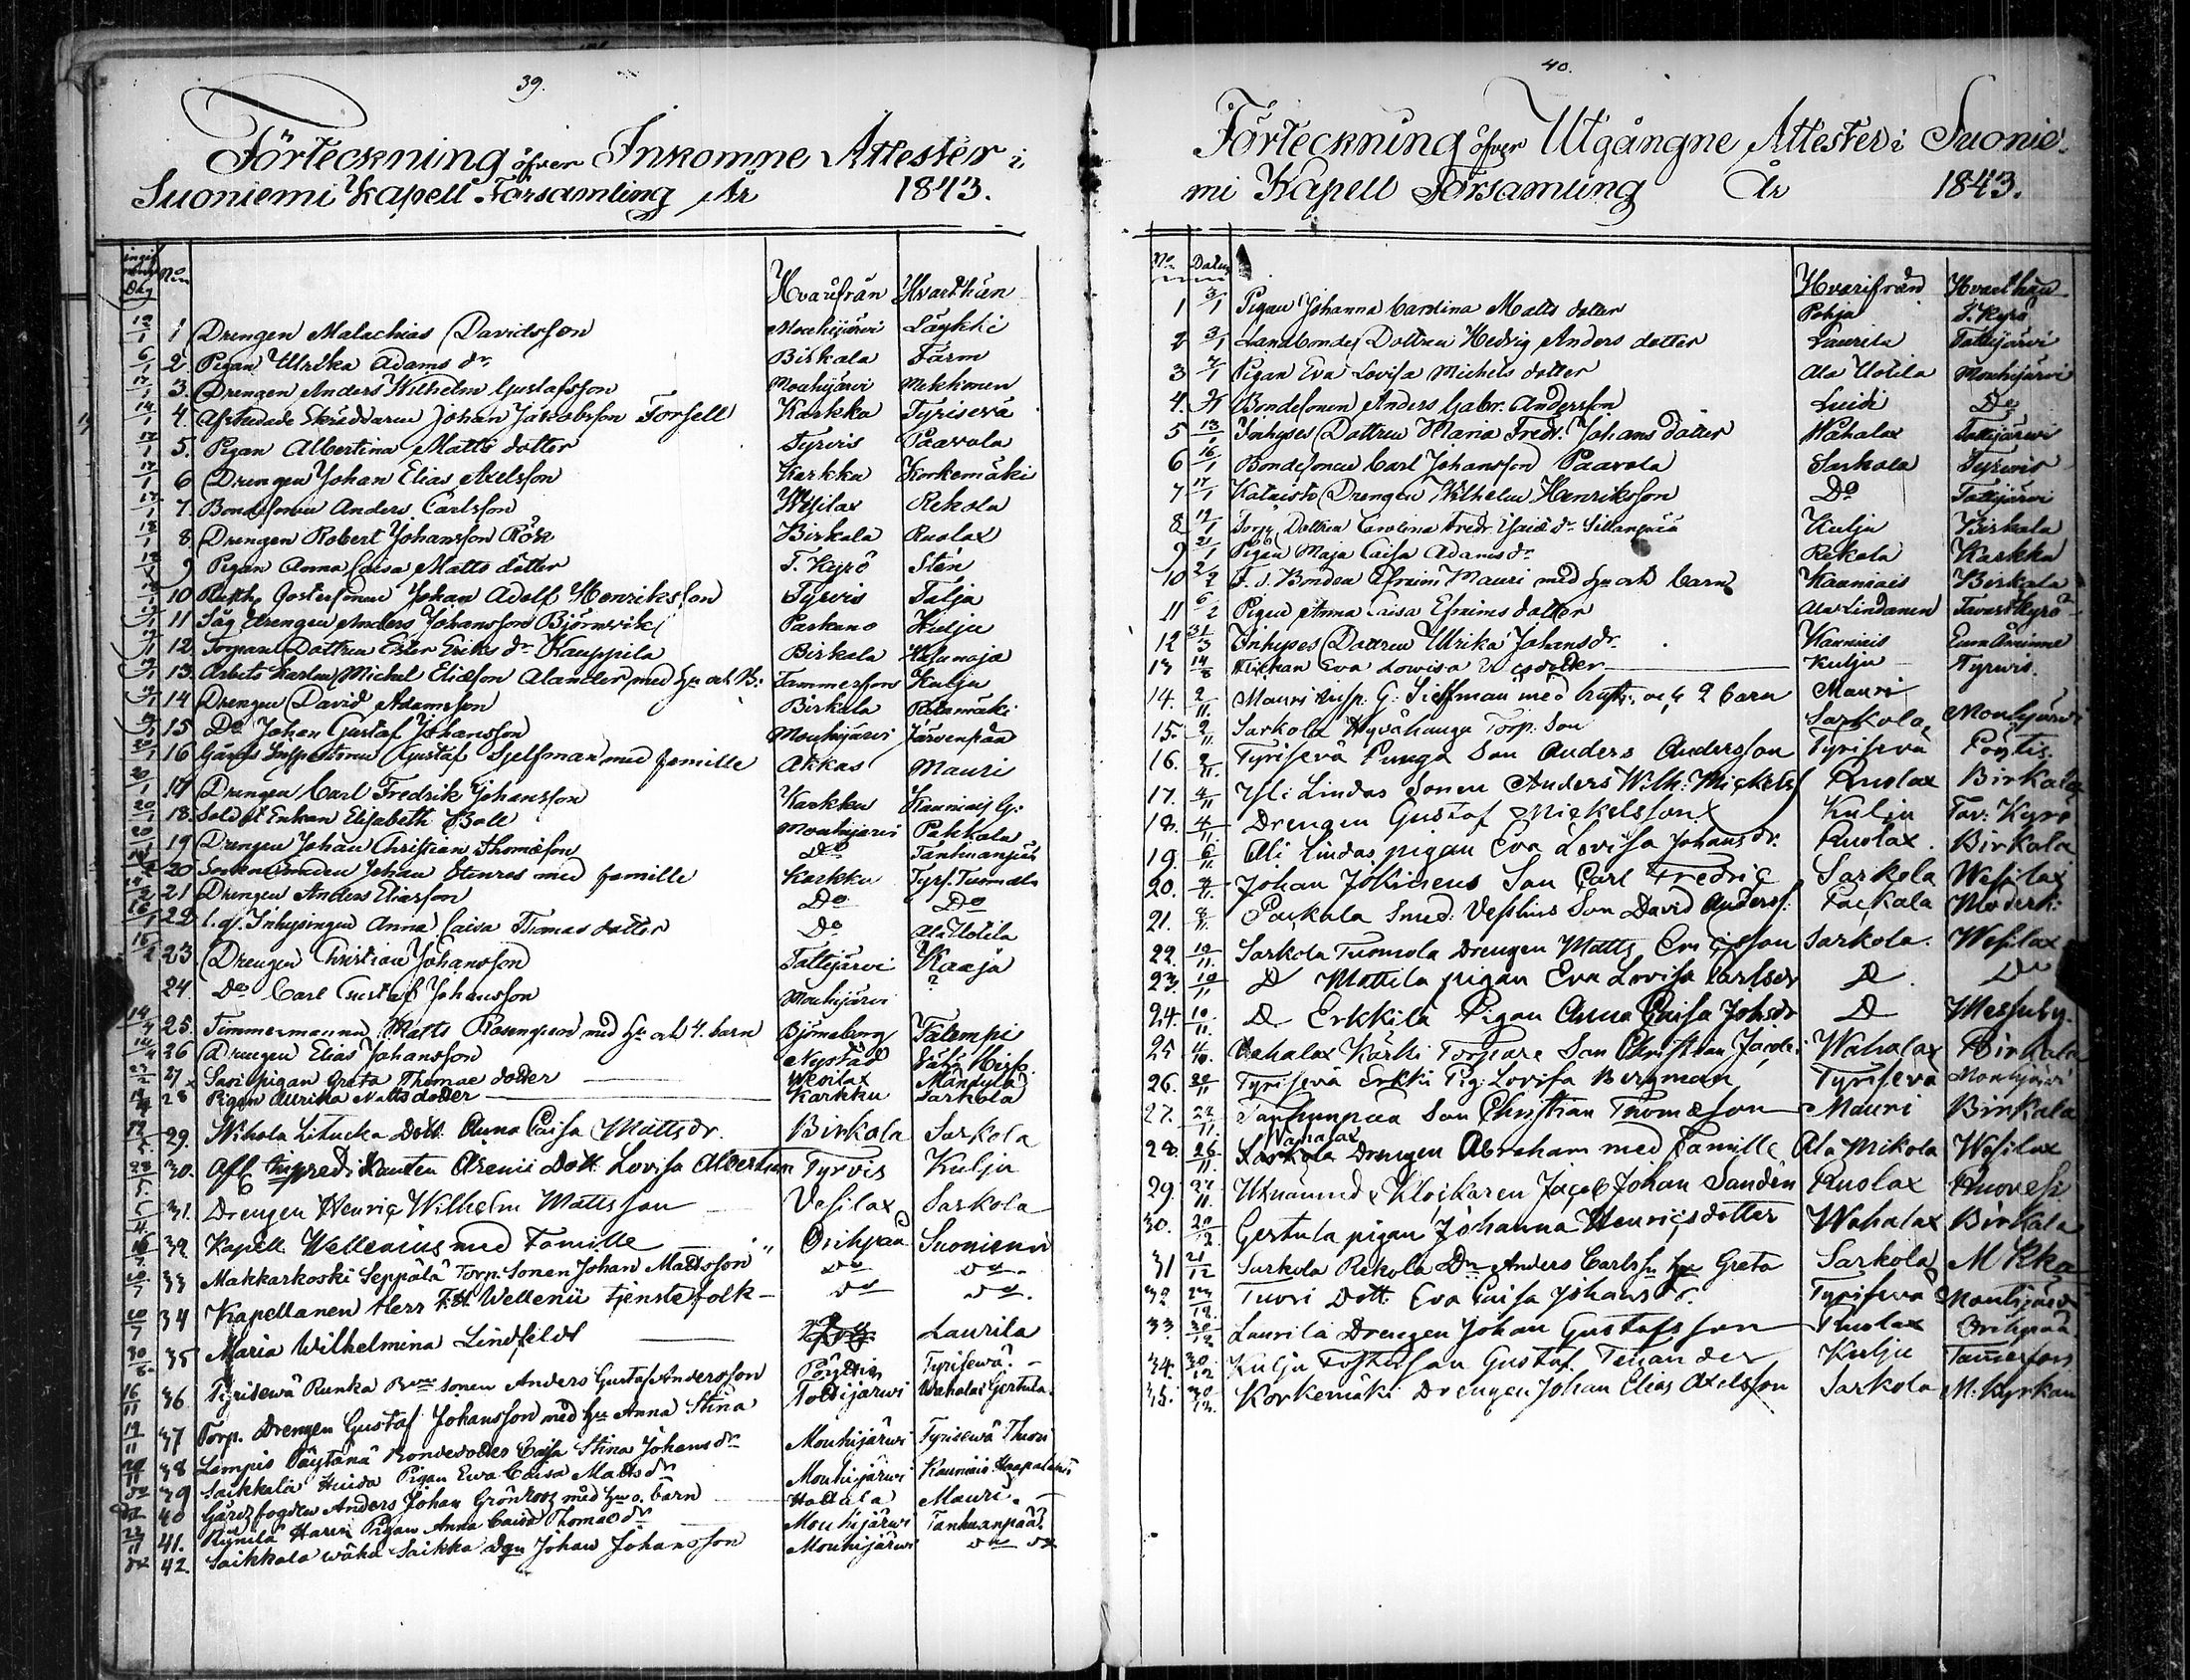 39.
Förteckning öfver Inkomne Attester i
Suoniemi Kapell Församling År 1843.
Dag No Hvarifrån Hvarthän
12/1 1 Drengen Malachias Davidsson Mouhijärvi Läykki
6/1 2 Pigan Ulrika Adams dr Birkala Farm
3. Drengen Anders Wilhelm Gustafsson Mouhijärvi
14/1 4. Afskedade Skräddaren Johan Jakobsson Forsell Karkku Tyrisevä
17/1 5. Pigan Albertina Matts dotter Tyrvis Paavola
17/1 6 Drengen Johan Elias Axelsson Karkku Korkemäki
7. Bondesonen Anders Carlsson Wesilax Rekola
18/1 8. Drengen Robert Johansson Birkala Ruolax
9 Pigan Anna Caisa Matts dotter T. Kyrö Stén
10 Johan Adolf Henriksson Tyrvis Talja
11 Såg drengen Anders Johansson Björnvik Parkano Kulju
12. Torpare Dottren Ester Eriks dr Kauppila Birkala
13. Arbets karlen Michel Eliasson Alander med hu och B: Tammerfors Kulju
14 Drengen David Adamsson Birkala
15 Do Johan Gustaf Johansson Mouhijärvi Järvenpää
20/1 16 Gårds Inspectoren Gustaf Sjelfman med familie Akkas Mauri
20/1 17 Drengen Carl Fredrik Johansson Karkku Kauniais G:
20/1 18. Sold. Enkan Elisabeth Boll Mouhijärvi Pakkala
19 Drengen Johan Christian Thomasson Do Tanhuanpää
20 Sockne Johan Stenros med familie Karkku Tyrs. Tuomola
21 Drengen Anders Eliasson Do Do
22 Inhysingen Anna Caisa Thomas dotter Do Ala Uotila
16/2 23 Drengen Christian Johansson Tottijärvi Kaaja
24. Do Carl Gustaf Johansson Mouhijärvi ?
25. Timmermannen Matts Rosengren med hu och 4. barn Björneborg
26 Drengen Elias Johansson Nystad
27 pigan Greta Thomae dotter Wesilax Mäntylä
28 Pigan Ulrika Matts dotter Karkku Sarkola
29. Dott. Anna Caisa Matts dr. Birkala Sarkola
30. Afl. Dott. Lovisa Albertina Tyrvis Kulju
31. Drengen Henric Wilhelm Mattsson Vesilax Sarkola
32 Kapell. Wellenius med Familie Orihpää Suoniemi
33 Makkarkoski Seppälä Torp. Sonen Johan Mattsson do do
34 Kapellanen Herr F.H. Wellenii tjenstefolk do do
35 Maria Wilhelmina Lindfeldt Laurila
16/11 36 Tyrisewä Runka Sonen Anders Gustaf Andersson Pöydtis Tyrisewä
37 Torp. Drengen Gustaf Johansson med hu Anna Stina Tottijärwi Wahalax Gerhula
38 Lempis Pöytänä Bondedotter Caisa Stina Johans dr Mouhijärwi Tyrisewä Thuori
39 Saikkala Huida Pigan Ewa Caisa Matts dr Mouhijärwi Kauniais
40 Gårdsfogden Anders Johan Grönroos med hu o. barn Hattula Mauri
41. Harri Pigan Anna Caisa Thomas dr Mouhijärwi Tanhuanpää
42. Saikkala wäha Saikka dgn Johan Johansson Mouhijärwi do do
40.
Förteckning öfver Utgångne Attester i Suonie-
mi Kapell Församling År 1843.
No Datum Hvarifrån Hvarthän
1 3/1 Pigan Johanna Carolina Matts dotter Pohja T. Kyrö
2 3/1 Landbondes Dottren Hedvig Anders dotter Laurila Tottijärvi
3 Pigan Eva Lovisa Michels dotter Ala Uotila Mouhijärvi
4. Bondesonen Anders Gabr. Andersson Do
5 13/1 Inhyses Dottren Maria Fredr. Johans dotter Wahalax Tottijärvi
6 16/1 Bondesonen Carl Johansson Paavola Sarkola Tyrvis
7 17/1 Drengen Wilhelm Henriksson Do Tottijärvi
8 19/1 Torp. Dottren Carolina Fredr. dr Sillanpää Kulju Birkala
9 21/1 Pigan Maja Caisa Adams dr Rekola Karkku
10 2/2 F. d. Bonden Efraim Mauri med hu och barn Kauniais Birkala
11 6/2 Pigan Anna Caisa Efraims dotter Ala Lindanen Tavast Kyrö
12 31/3 Inhyses Dottren Ulrika Johans dr Kauniais
13 14/8 Eva Lowisa dotter Kulju Tyrwis.
14. 2/11 Mauri Insp. G: Sjelfman med hustr. och 2 barn Mauri
15. 2/11 Sarkola Hyvähanga Torp. Son Sarkola Mouhijärvi
16. 2/11 Tyrisevä Punga Son Anders Andersson Tyrisevä Pöytis
17. 4/11 Yli Lindas Sonen Anders Wilh: Mickels Ruolax Birkala
18. 4/11 Drengen Gustaf Mickelsson Kulju Tav: Kyro
19. 6/11 Ali Lindas pigan Eva Lovisa Johans dr. Ruolax Birkala
20. Johan Jokinens Son Carl Fredric Sarkola Wesilax
21. 8/11 Packala Smed: Son David Anders: Packala
22. 10/11 Sarkola Tuomola Drengen Matts Ericsson Sarkola Wesilax
23. 10/11 D Mattila pigan Eva Lovisa Carlsdr D Do
24. 10/11 D Erkkilä Pigan Anna Caisa Johsdr D Messuby.
25 Wahalax Kärki Torpare Son Christian Wahalax Birkala
26. 20/11 Tyrisevä Erkki Pig: Lovisa Bergman Tyrisevä Mouhijärvi
27. 22/11 Tanhuanpää Son Christian Thomasson Mauri Birkala
28. 26/11 Wahalax Drengen Abraham med Familie Ala Mikola Wesilax
29. 27/11 Utnämnde Klockaren Jacob Johan Sandén Ruolax Ruovesi
30. 20/12 Gerhula pigan Johanna Henricsdotter Wahalax Birkala
31 21/12 Sarkola Rekola Dn Anders Carlssn hu Greta Sarkola
32 23/12 Tuori Dott. Eva Caisa Johans dr. Tyrisewä Mouhijärv
33 Laurila Drengen Johan Gustafsson Ruolax Orihpää
34. 30/12 Kulju Fosterson Gustaf Tenander Kulju Tamerfors
35. 30/12 Korkemäki Drengen Johan Elias Axelsson Sarkola M. Kyrkan